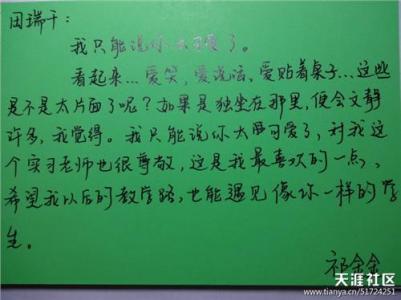 田瑞千：
我只能说你太可爱了。
看起来…爱笑，爱说话，爱贴着桌子…这些
是不是太片面了呢？如果是独坐在那里，便会文静
许多，我觉得。我只能说你太可爱了，对我这
个实习老师也很尊敬，这是我最喜欢的一点，
希望我以后的教学路，也能遇见像你一样的学
生。
祁金金
天涯社区
www.tianya.cn/51724251